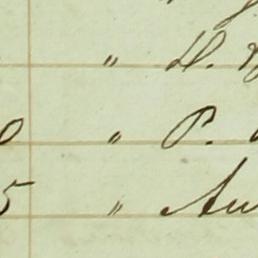 " H.
0 " P.
5 " Au